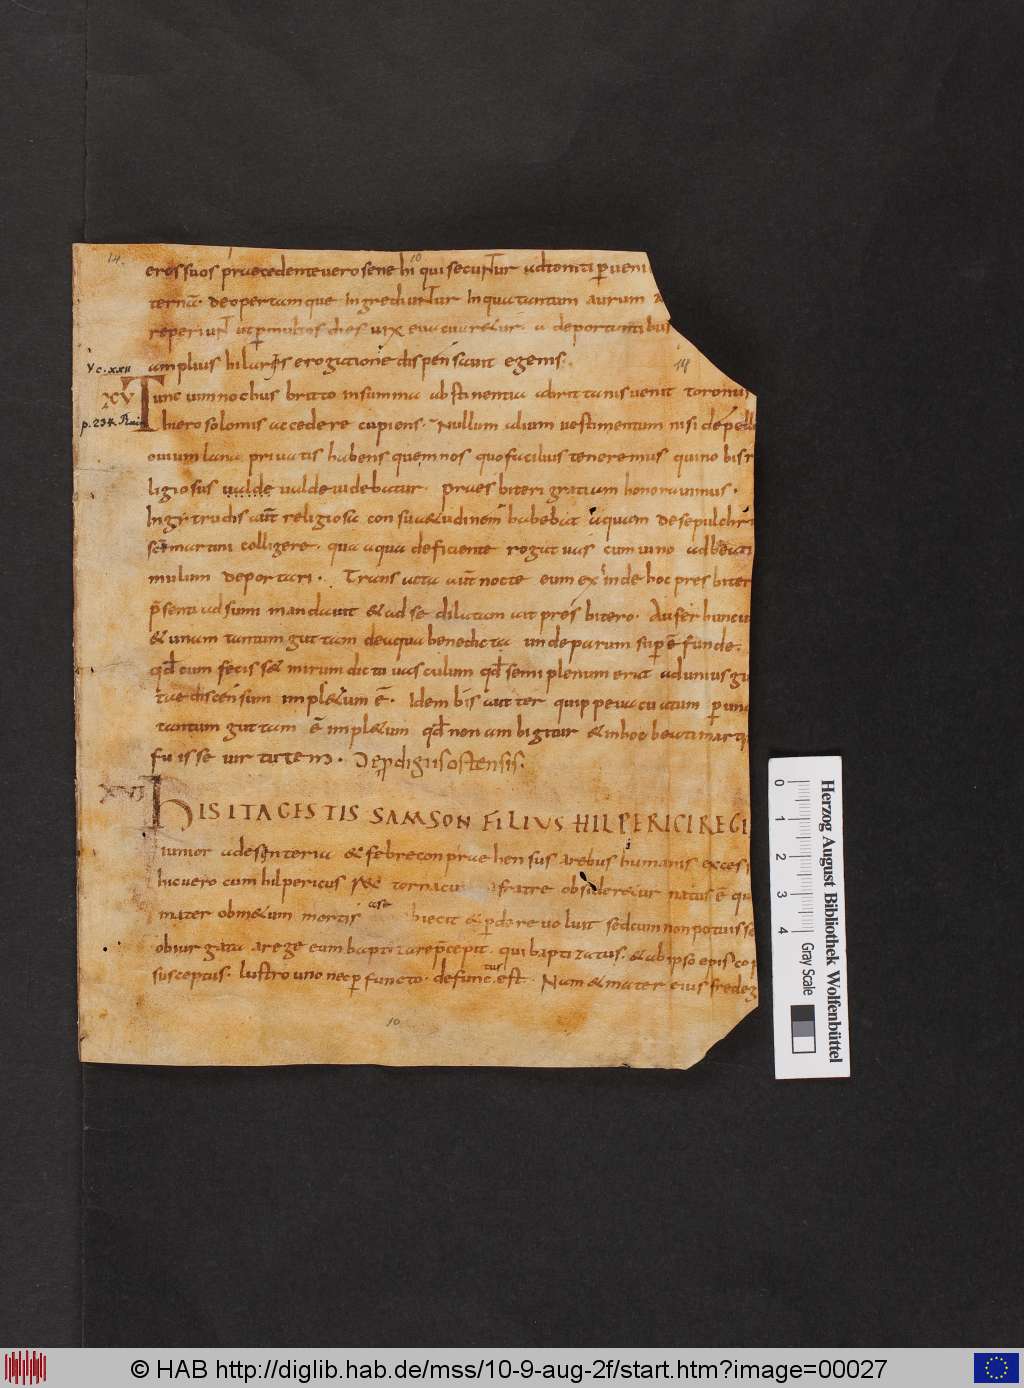 14. 10
eros suos praecedente vero sene hi qui secuntur ad
ternā. De opertamque Ingrediuntur In qua tantum aurum
reperiunt ut per multos dies vix evacuaretur. a deportantibus
amplius hilaris erogatione dispensavit egenis.
V.c. XXII
14
XV Tunc uuinnochus britto In summa abstinentia a brittanis uenit toronu
p. 234
hierosolomis accedere cupiens. Nullum alium vestimentum nisi de pell
ovium lana privatis habens quem nos quo facilius teneremus quino bis r
ligiosus valde valde videbatur. praesbiteri gratiam honoravimus.
Ingytrudis aūt religiosa consuetudinem habebat aquam de sepulchr
scī martini colligere. qua aqua deficiente rogat vas cum vino ad beati
mulum deportari. Transacta aūt nocte eum exinde hoc presbiter
p̄senti adsumi mandavit & ad se dilatam ait presbitero. Aufer hinc vi
& unam tantum guttam de aqua benedicta unde parum superē funde.
qđ cum fecisset mirum dictu vasculum qđ semiplenum erat ad unius gu
tae discensum impletum ē. Idem bis aut ter quippe vacuatum per una
tantum guttam ē impletum qđ non ambigitur & in hoc beati marti
fuisse virtutem. De prodigiis ostensis.
XVI HIS ITA GESTIS SAMSON FILIUS HILPERICI REGI
iunior adesenteria & febre conpraehensus a rebus humanis excess
hic vero cum hilpericus tornacu fratre obsideretur natus ē qu
mater ob metum mortis biecit & perdere voluit sed cum non potuisse
obiurgata a rege eum baptizare p̄cepit. qui baptizatus. & ab ipso episcop
susceptus. lustro uno nec perfuncto. defunctus est. Nam & mater eius fredeg
10
0 1 2 3 4
Gray Scale
Herzog August Bibliothek Wolfenbüttel
© HAB http://diglib.hab.de/mss/10-9-aug-2f/start.htm?image=00027